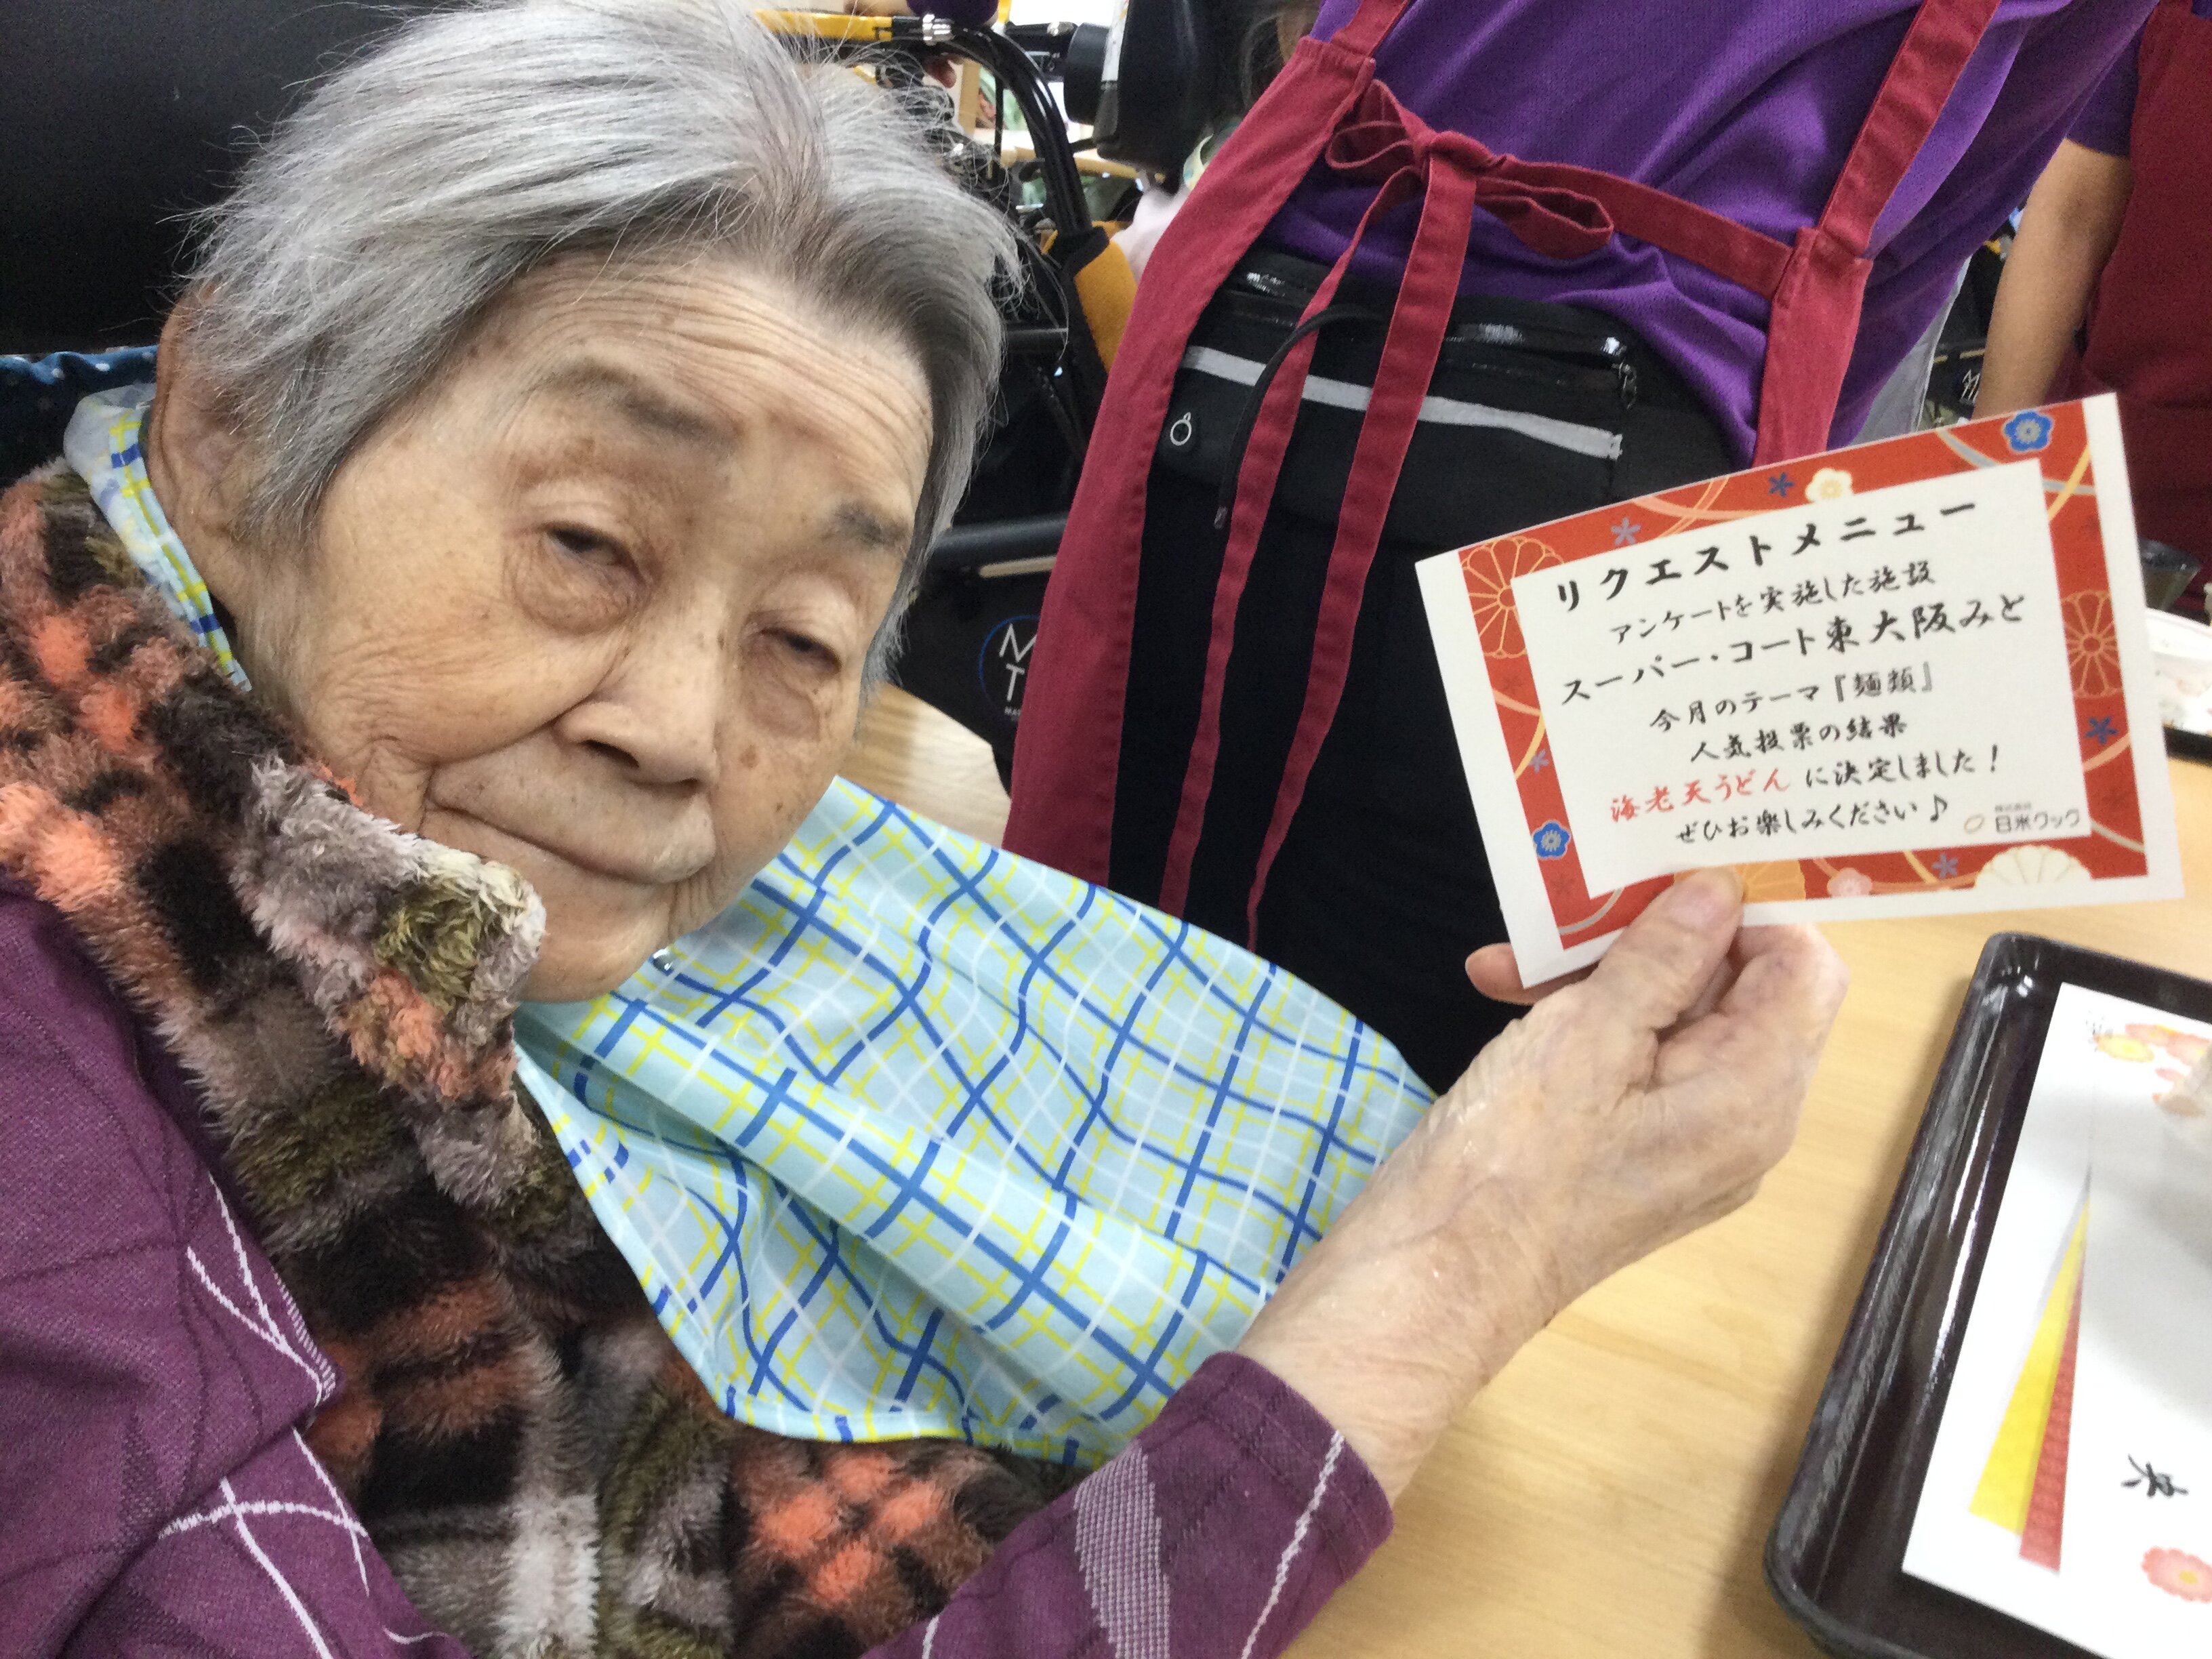 リクエストメニュー
アンケートを実施した施設
スーパー・コート東大阪みと
今月のテーマ『麺類』
人気投票の結果
海老天うどん に決定しました！
ぜひお楽しみください♪
株式会社
日米クック